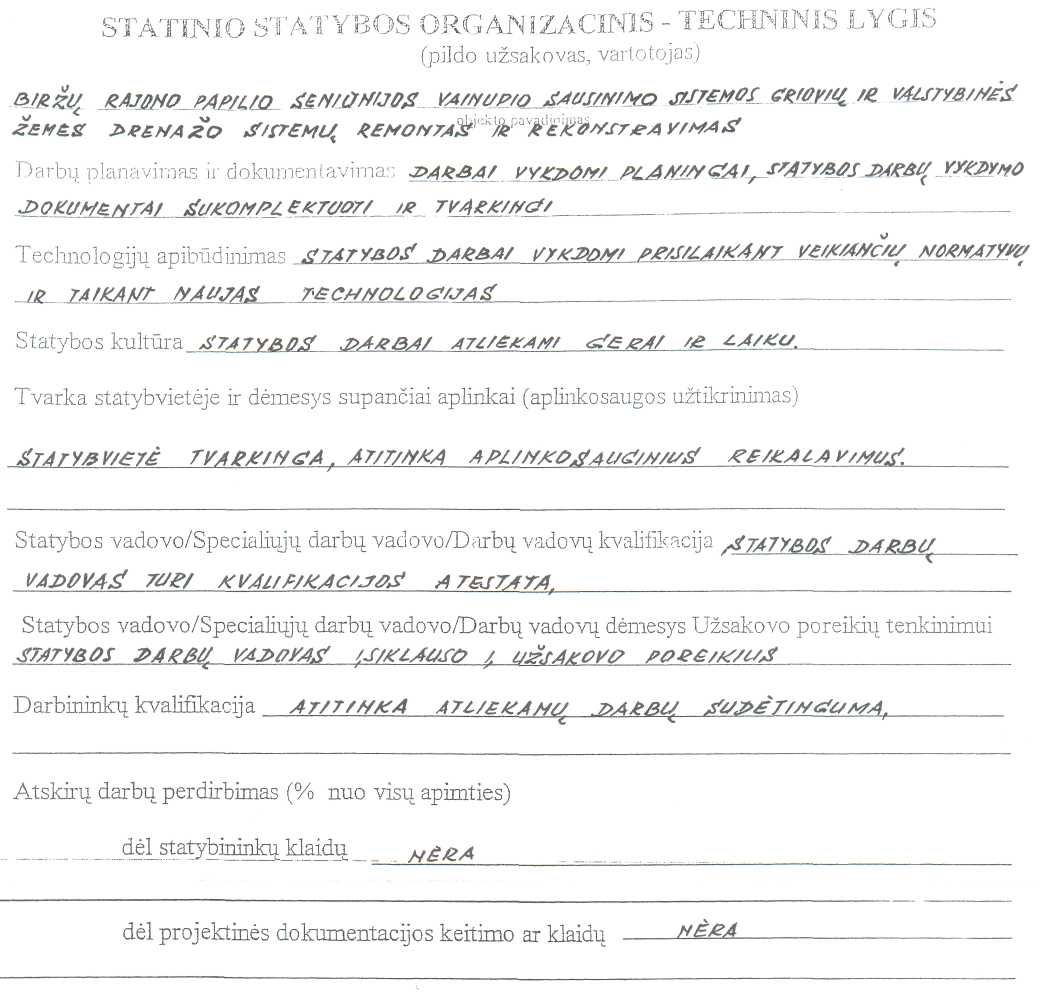 STATINIO STATYBOS ORGANIZACINIS - TECHNINIS LYGIS
(pildo užsakovas, vartotojas)
BIRŽŲ RAJONO PAPILIO SENIŪNIJOS VAINUPIO SAUSINIMO SISTEMOS GRIOVIŲ IR VALSTYBINĖS
objekto pavadinimas
ŽEMĖS DRENAŽO SISTEMŲ REMONTAS IR REKONSTRAVIMAS
Darbų planavimas ir dokumentavimas DARBAI VYKDOMI PLANINGAI, STATYBOS DARBŲ VYKDYMO
DOKUMENTAI SUKOMPLEKTUOTI IR TVARKINGI
Technologijų apibūdinimas STATYBOS DARBAI VYKDOMI PRISILAIKANT VEIKIANČIŲ NORMATYVŲ
IR TAIKANT NAUJAS TECHNOLOGIJAS
Statybos kultūra STATYBOS DARBAI ATLIEKAMI GERAI IR LAIKU.
Tvarka statybvietėje ir dėmesys supančiai aplinkai (aplinkosaugos užtikrinimas)
STATYBVIETĖ TVARKINGA, ATITINKA APLINKOSAUGINIUS REIKALAVIMUS.
Statybos vadovo/Specialiųjų darbų vadovo/Darbų vadovų kvalifikacija STATYBOS DARBŲ
VADOVAS TURI KVALIFIKACIJOS ATESTATĄ
Statybos vadovo/Specialiųjų darbų vadovo/Darbų vadovų dėmesys Užsakovo poreikių tenkinimui
STATYBOS DARBŲ VADOVAS ĮSIKLAUSO Į UŽSAKOVO POREIKIUS
Darbininkų kvalifikacija ATITINKA ATLIEKAMŲ DARBŲ SUDĖTINGUMĄ
Atskirų darbų perdirbimas (% nuo visų apimties)
dėl statybininkų klaidų NĖRA
dėl projektinės dokumentacijos keitimo ar klaidų NĖRA